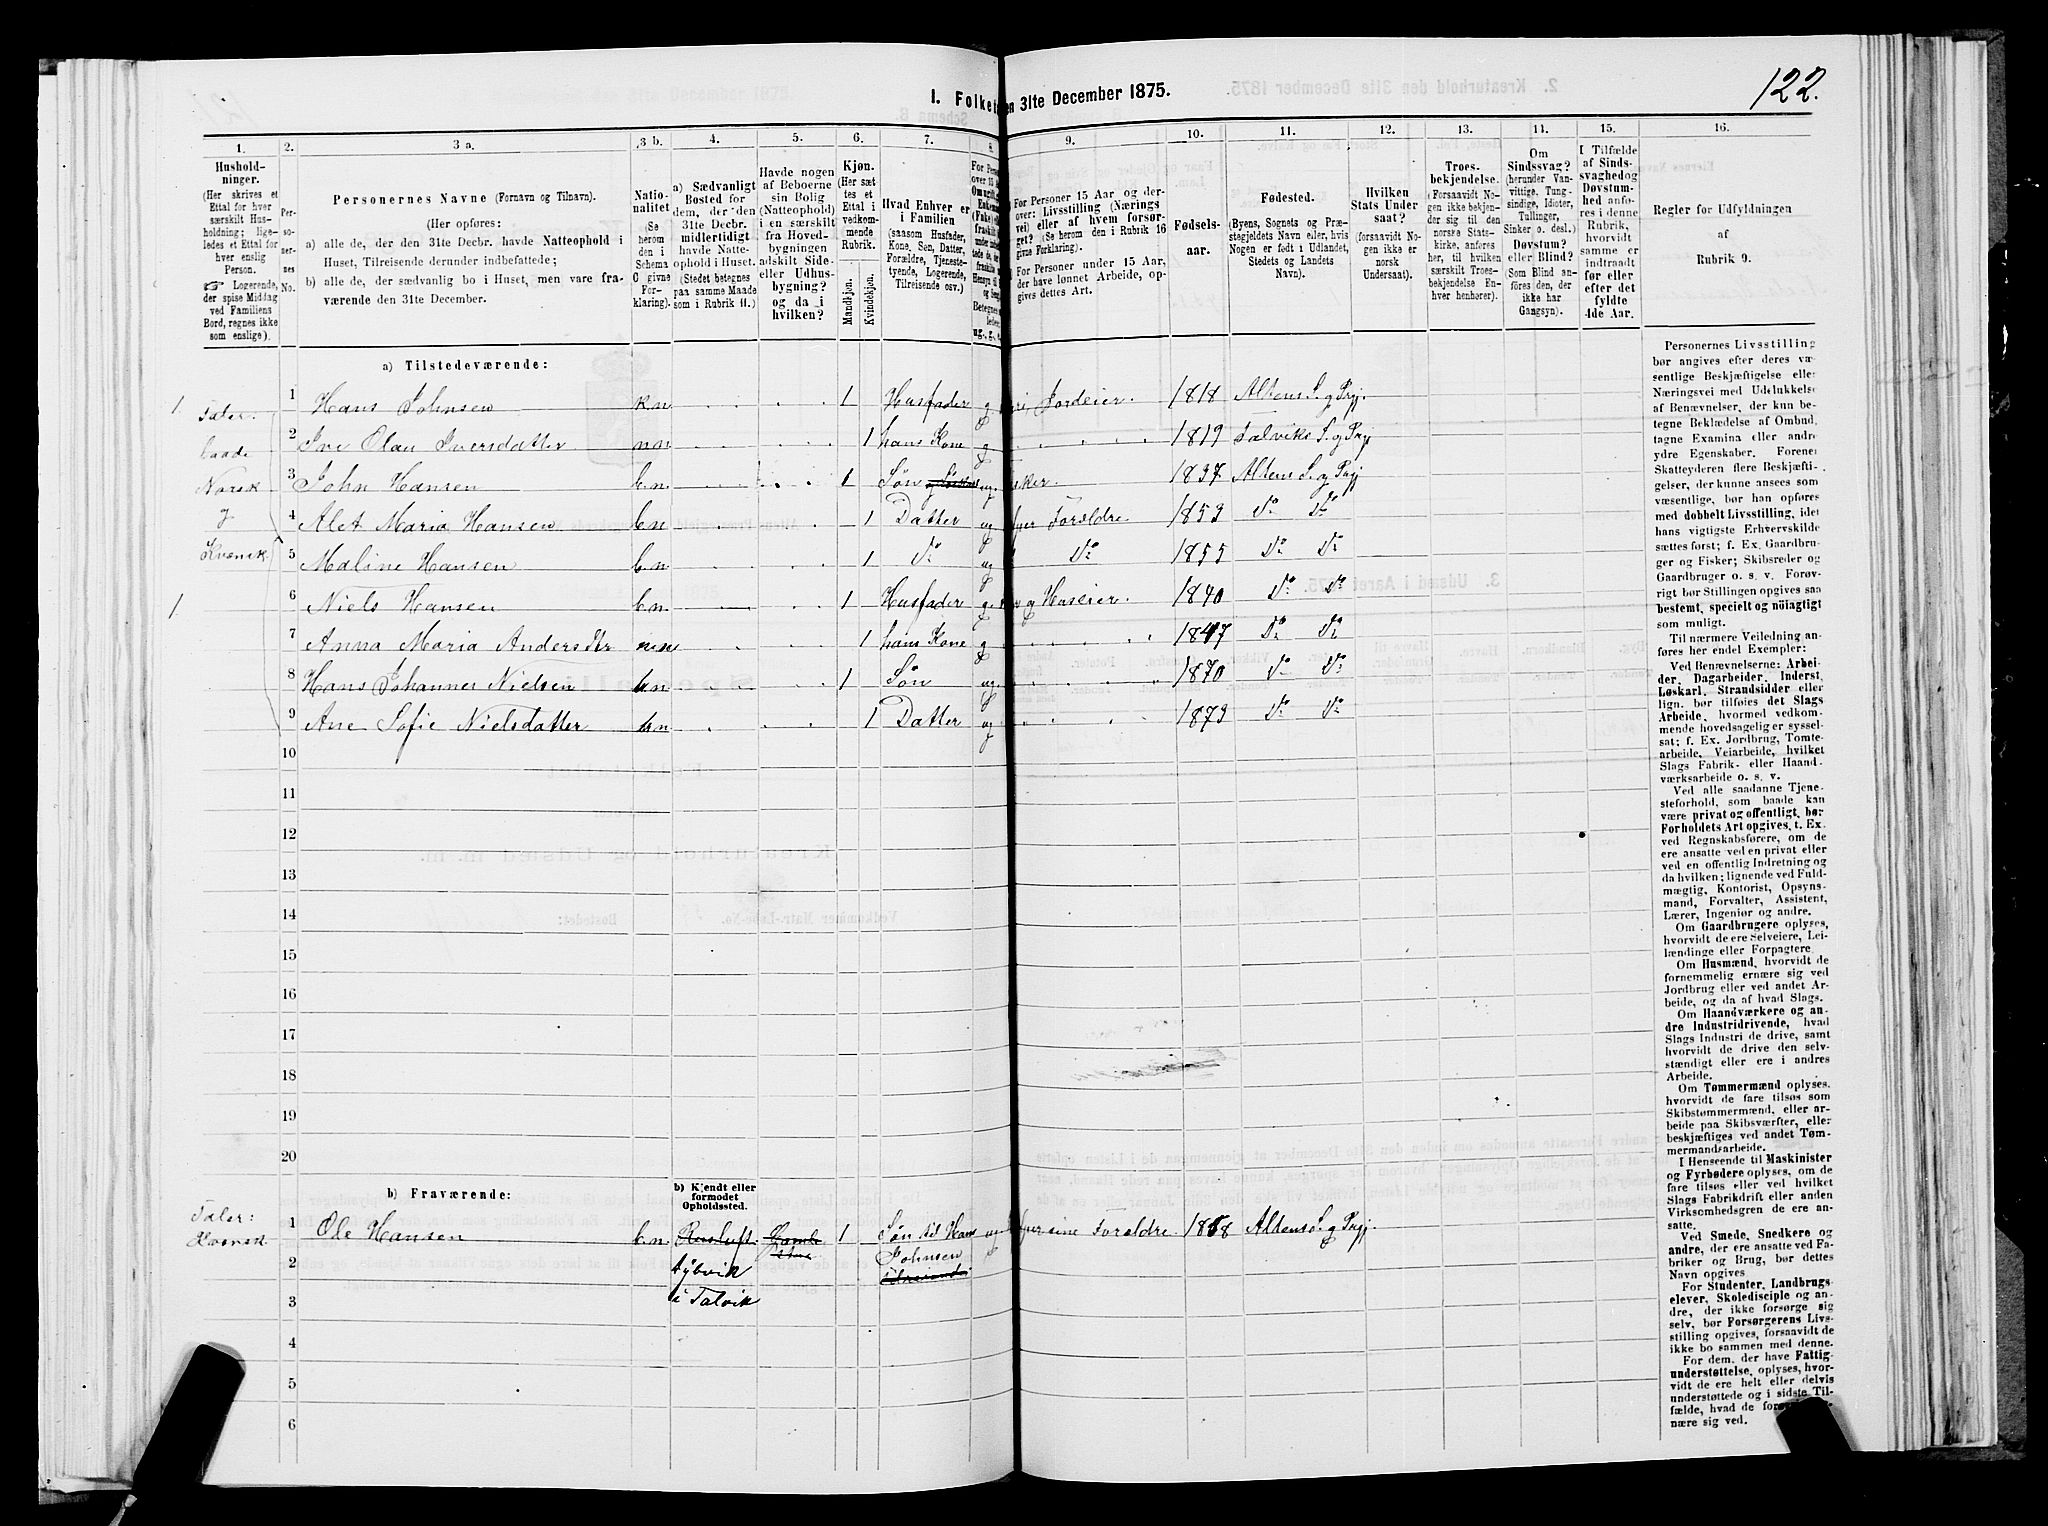 122.
I. Folket en 31te December 1875.
1. 2. 3 a. 3 b. 4. 5. 6. 7. 8. 9. 10. 11. 12. 13. 14. 15. 16.
Hushold-
ninger.
(Her skrives et
Ettal for hver
særskilt Hus-
holdning; lige-
ledes et Ettal for
hver enslig
Person.
☞ Logerende,
der spise Middag
ved Familiens
Bord, regnes ikke
som enslige).
Per-
so-
ner-
nes
No.
Personernes Navne (Fornavn og Tilnavn).
(Her opføres:
a) alle de, der den 31te Decbr. havde Natteophold i
Huset, Tilreisende derunder indbefattede;
b) alle de, der sædvanlig bo i Huset, men vare fra-
værende den 31te December.
Natio-
nalitet
Se
herom
den i
Schema
C givne
For-
klaring).
a) Sædvanligt
Bosted for
dem, der den
31te Decbr.
midlertidigt
havde Natte-
ophold i Huset.
(Stedet betegnes
paa samme Maade
som i Rubrik 11.)
Havde nogen
af Beboerne
sin Bolig
(Natteophold)
i en særskilt
fra Hoved-
bygningen
adskilt Side-
eller Udhus-
bygning?
og da i
hvilken?
Kjøn.
(Her sæt
tes et
Ettal i
vedkom-
mende
Rubrik.
Mandkjøn.
Kvindekjøn.
Hvad Enhver er
i Familien
(saasom Husfader,
Kone, Søn, Datter,
Forældre, Tjeneste-
tyende, Logerende,
Tilreisende osv.)
For Personer 15 Aar og der-
over: Livsstilling (Nærings
vei) eller af hvem forsør-
get? (Se herom den i Rubrik 16
givne Forklaring).
For Personer under 15 Aar,
der have lønnet Arbeide, op-
gives dettes Art.
Fødsels-
aar.
Fødested.
(Byens, Sognets og Præ-
stegjeldets Navn eller, hvis
Nogen er født i Udlandet,
Stedets og Landets
Navn).
Hvilken
Stats Under
saat?
(forsaavidt No-
gen ikke er
norsk
Undersaat).
Troes-
bekjendelse.
(Forsaavidt No-
gen ikke bekjen-
der sig til den
norske Stats-
kirke, anføres
her, til hvilken
særskilt Troes-
bekjendelse En-
hver henhører).
Om
Sindssvag?
(herunder Van-
vittige, Tung-
sindige, Idioter,
Tullinger,
Sinker o. desl.)
Døvstum?
eller Blind?
(Som Blind an-
føres den, der
ikke har
Gangsyn).
I Tilfælde
af Sinds-
svaghed og
Døvstum-
hed anføres
i denne
Rubrik,
hvorvidt
samme er
indtraadt
før eller
efter det
fyldte
4de Aar.
Regler for Udfyldningen
af
Rubrik 9.
a) Tilstedeværende:
1 1 Hans Johnsen k.n 1 Husfader g Jordeier. 1818 Altens S. g Prgj.
Taler
baade
Norsk
g
Kvænsk
2 Ive Olau Iversdatter n.n 1 hans Kone g 1819 Talviks S. g Prgj
3 John Hansen b.n 1 Søn ug. sker. 1837 Altens S. g Prgj
4 Alet Maria Hansen b.n 1 Datter ug Forældre 1853 Do Do
5 Maline Hansen b.n 1 Do ug Do 1855 Do Do
1 6 Niels Hansen b.n 1 Husfader g. g Huseier. 1840 Do Do
7 Anna Maria Andersdtr n.n 1 hans Kone g 1847 Do Do
8 Hans Johannes Nielsen b.n 1 Søn ug 1870 Do Do
9 Ane Sofie Nielsdatter b.n 1 Datter ug 1873 Do Do
10
11
12
13
14
15
16
17
18
19
20
b) Fraværende:
b) Kjendt eller
formodet
Opholdssted.
Taler:
Kvænsk
1 Ole Hansen b.n 1 Søn til Hans ug sine Forældre. 1858 Altens S. g Prgj.
2 i Talvik Johnsen
3
4
5
6
Personernes Livsstilling
bør angives efter deres væ-
sentlige Beskjæftigelse eller
Næringsvei med Udelukkelse
af Benævnelser, der kun be-
tegne Beklædelse af Ombud,
tagne Examina eller andre
ydre Egenskaber. Forener
Skatteyderen flere Beskjæfti-
gelser, der kunne ansees som
væsentlige, bør han opføres
med dobbelt Livsstilling, idet
hans vigtigste Erhvervskilde
sættes først; f. Ex. Gaardbru-
ger og Fisker; Skibsreder og
Gaardbruger o. s. v. Forøv-
rigt bør Stillingen opgives saa
bestemt, specielt og nöiagtigt
som muligt.
Til nærmere Veiledning an-
føres her endel Exempler:
Ved Benævnelserne: Arbei-
der, Dagarbeider, Inderst,
Løskarl, Strandsidder eller
lign. bør tilføies det Slags
Arbeide, hvormed vedkom-
mende hovedsagelig er syssel-
sat; f. Ex. Jordbrug, Tomte-
arbeide, Veiarbeide, hvilket
Slags Fabrik- eller Haand-
værksarbeide o. s. v.
Ved alle saadanne Tjene-
steforhold, som baade kan
være privat og offentligt, bør
Forholdets Art opgives, t. Ex.
ved Regnskabsførere, om de
ere ansatte ved en privat eller
ved en offentlig Indretning og
da hvilken; lignende ved Fuld-
mægtig, Kontorist, Opsyns-
mand, Forvalter, Assistent,
Lærer, Ingeniør og andre.
Om Gaardbrugere oplyses,
hvorvidt de ere Selveiere, Lei-
lændinge eller Forpagtere
Om Husmænd, hvorvidt de
fornemmelig ernære sig ved
Jordbrug eller ved andet Ar-
beide, og da af hvad Slags.
Om Haandværkere og an-
dre Industridrivende, hvad
Slags Industri de drive, samt
hvorvidt de drive den selv-
stændigt eller ere i andres
Arbeide.
Om Tømmermænd oplyses,
hvorvidt de fare tilsøs som
Skibstømmermænd, eller ar-
beide paa Skibsværfter, eller
beskjæftiges ved andet Tøm-
mermandsarbeide.
I Henseende til Maskinister
og Fyrbødere oplyses, om de
fare tilsøs eller ved hvilket
Slags Fabrikdrift eller anden
Virksomhedsgren de ere an-
satte.
Ved Smede, Snedkere og
andre, der ere ansatte ved Fa-
briker og Brug, bør dettes
Navn opgives
For Studenter, Landbrugs-
elever, Skoledisciple og an-
dre, der ikke forsørge sig
selv, bør Forsørgerens Livs-
stilling opgives, forsaavidt de
ikke bo sammen med denne.
For dem, der have Fattig-
understøttelse, oplyses, hvor-
vidt de ere helt eller delvis
understøttede og i sidste Til-
fælde, hvad de
nære sig ved.